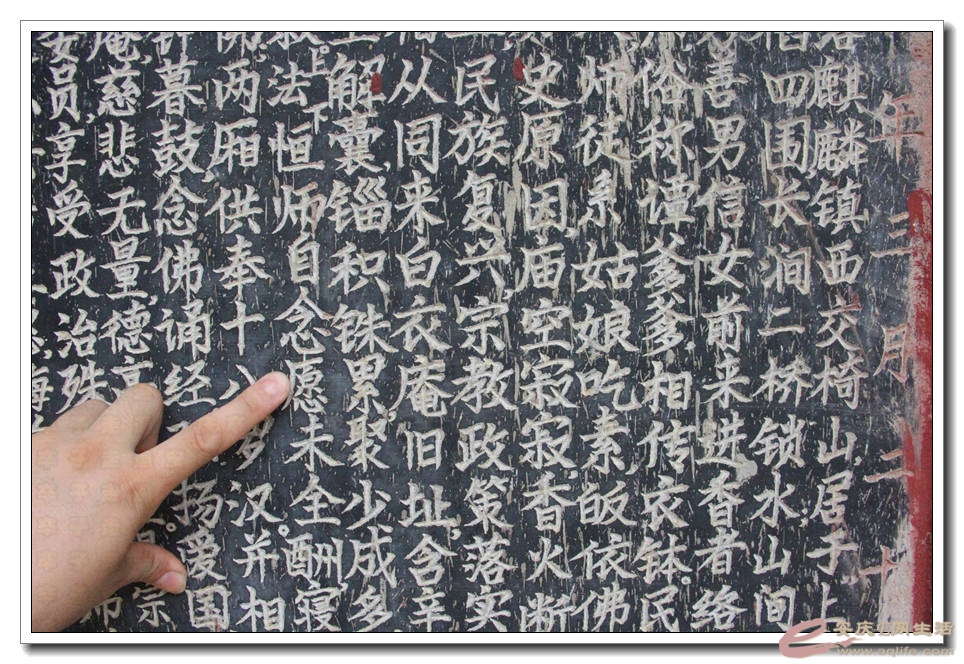 年月十
麒麟镇西交椅山,居于上
四围长涧二桥锁水;山间
善男信女前来进香者络
俗称谭爹爹,相传衣钵。民
师徒系姑娘吃素皈依佛
史原因庙空寂寂香火断
民族复兴,宗教政策落实
从同来白衣庵旧址,含辛
解囊,锱积铢累聚少成多
上法下恒师自念愿未全酬寝
两厢供奉十八 汉。并相
暮鼓念佛诵经 扬爱国
庵,慈悲无量,德高 宗
员享受政治殊
www.aqlife.com